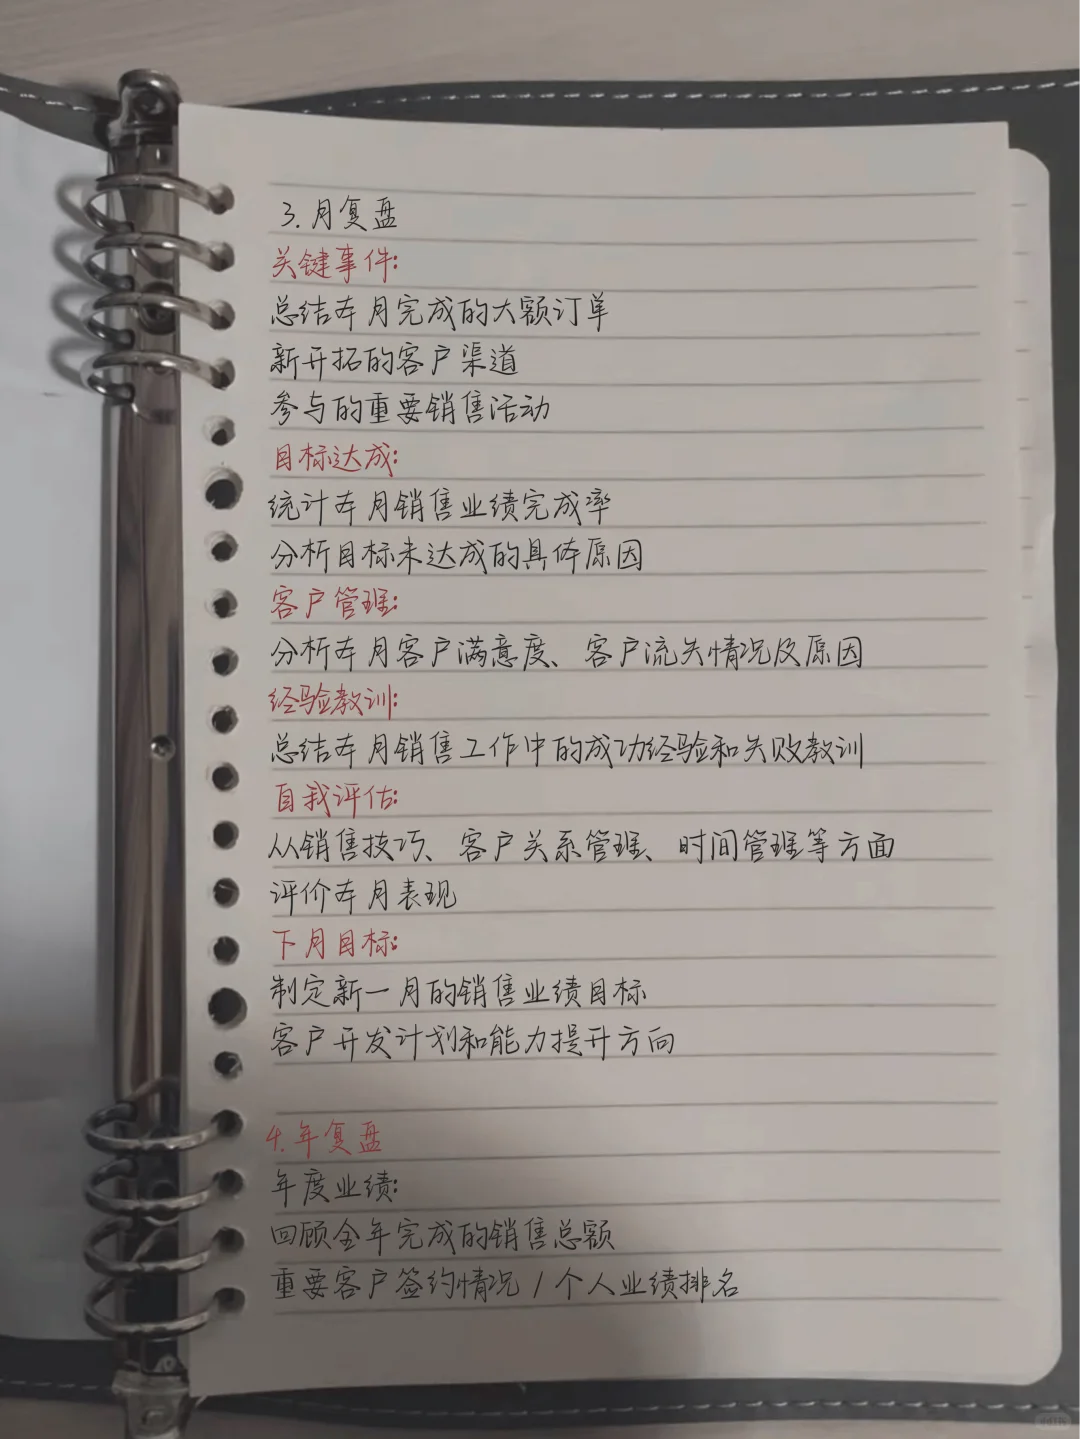 3.月复盘
关键事件:
总结本月完成的大额订单
新开拓的客户渠道
参与的重要销售活动
目标达成:
统计本月销售业绩完成率
分析目标未达成的具体原因
客户管理:
分析本月客户满意度、客户流失情况及原因
经验教训:
总结本月销售工作中的成功经验和失败教训
自我评估:
从销售技巧、客户关系管理、时间管理等方面
评价本月表现
下月目标:
制定新一月的销售业绩目标
客户开发计划和能力提升方向
4.年复盘
年度业绩:
回顾全年完成的销售总额
重要客户签约情况/个人业绩排名